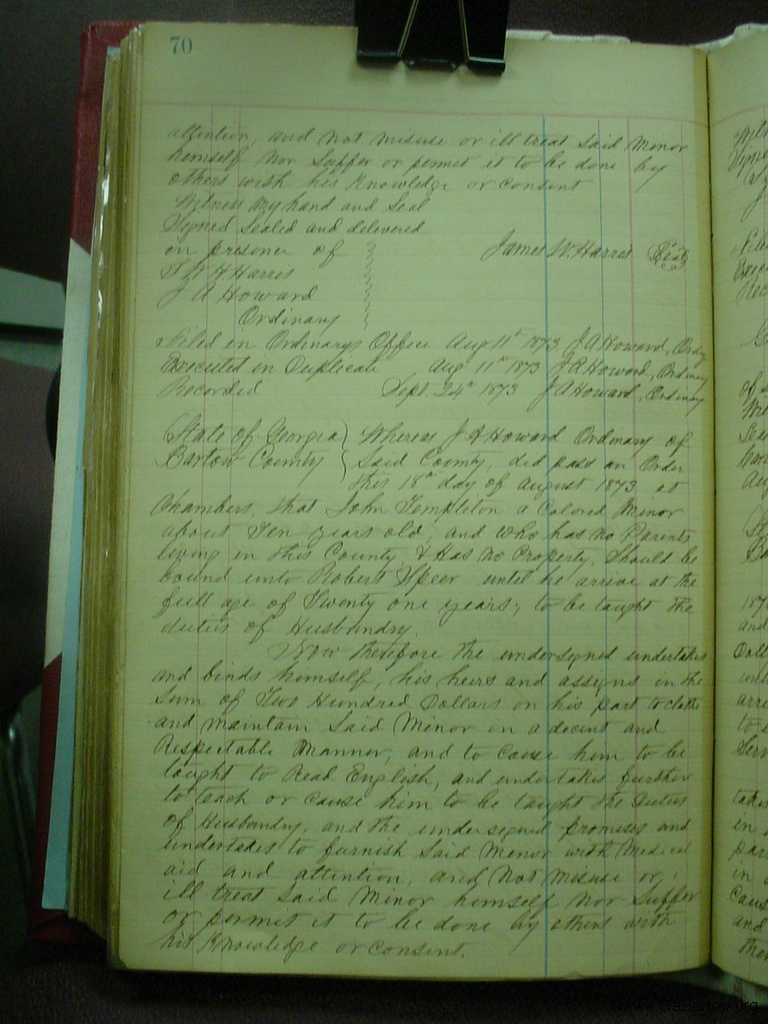 70
attention, and not misuse or ill treat said minor
himself nor Suffer or permit it to be done by
others with his Knowledge or Consent
Witness my hand and Seal
Signed Sealed and delivered
in presence of James W. Harris (Seal)
Harris
J A Howard
Ordinary
Filed in Ordinary Office Aug 11th 1873 J A Howard, Ordy
Executed in Duplicate Aug 11th 1873 J A Howard, Ordinary
Recorded Sept. 24th 1873 J A Howard, Ordinary
State of Georgia) Whereas J A Howard Ordinary of
Bartow County Said County, did pass an Order
this 18th day of August 1873 at
Chambers, that John Templeton a Colored Minor
about Ten years old, and who has no Parents
living in this County & Has no Property, Should be
bound unto Robert Speer until he arrive at the
full age of Twenty one years, to be taught the
duties of Husbandry.
Now therefore the undersigned undertakes
and binds himself, his heirs and assigns in the
Sum of Two Hundred Dollars on his part to clothe
and maintain Said Minor in a decent and
Respectable Manner, and to Cause him to be
taught to Read English, and undertakes further
to teach or cause him to be taught the Duties
of Husbandry. and the undersigned promises and
undertakes to furnish Said Minor with Medical
aid and attention, and not misuse or
ill treat Said Minor himself nor Suffer
or permit it to be done by others with
his Knowledge or Consent.
www.GaBartow.org